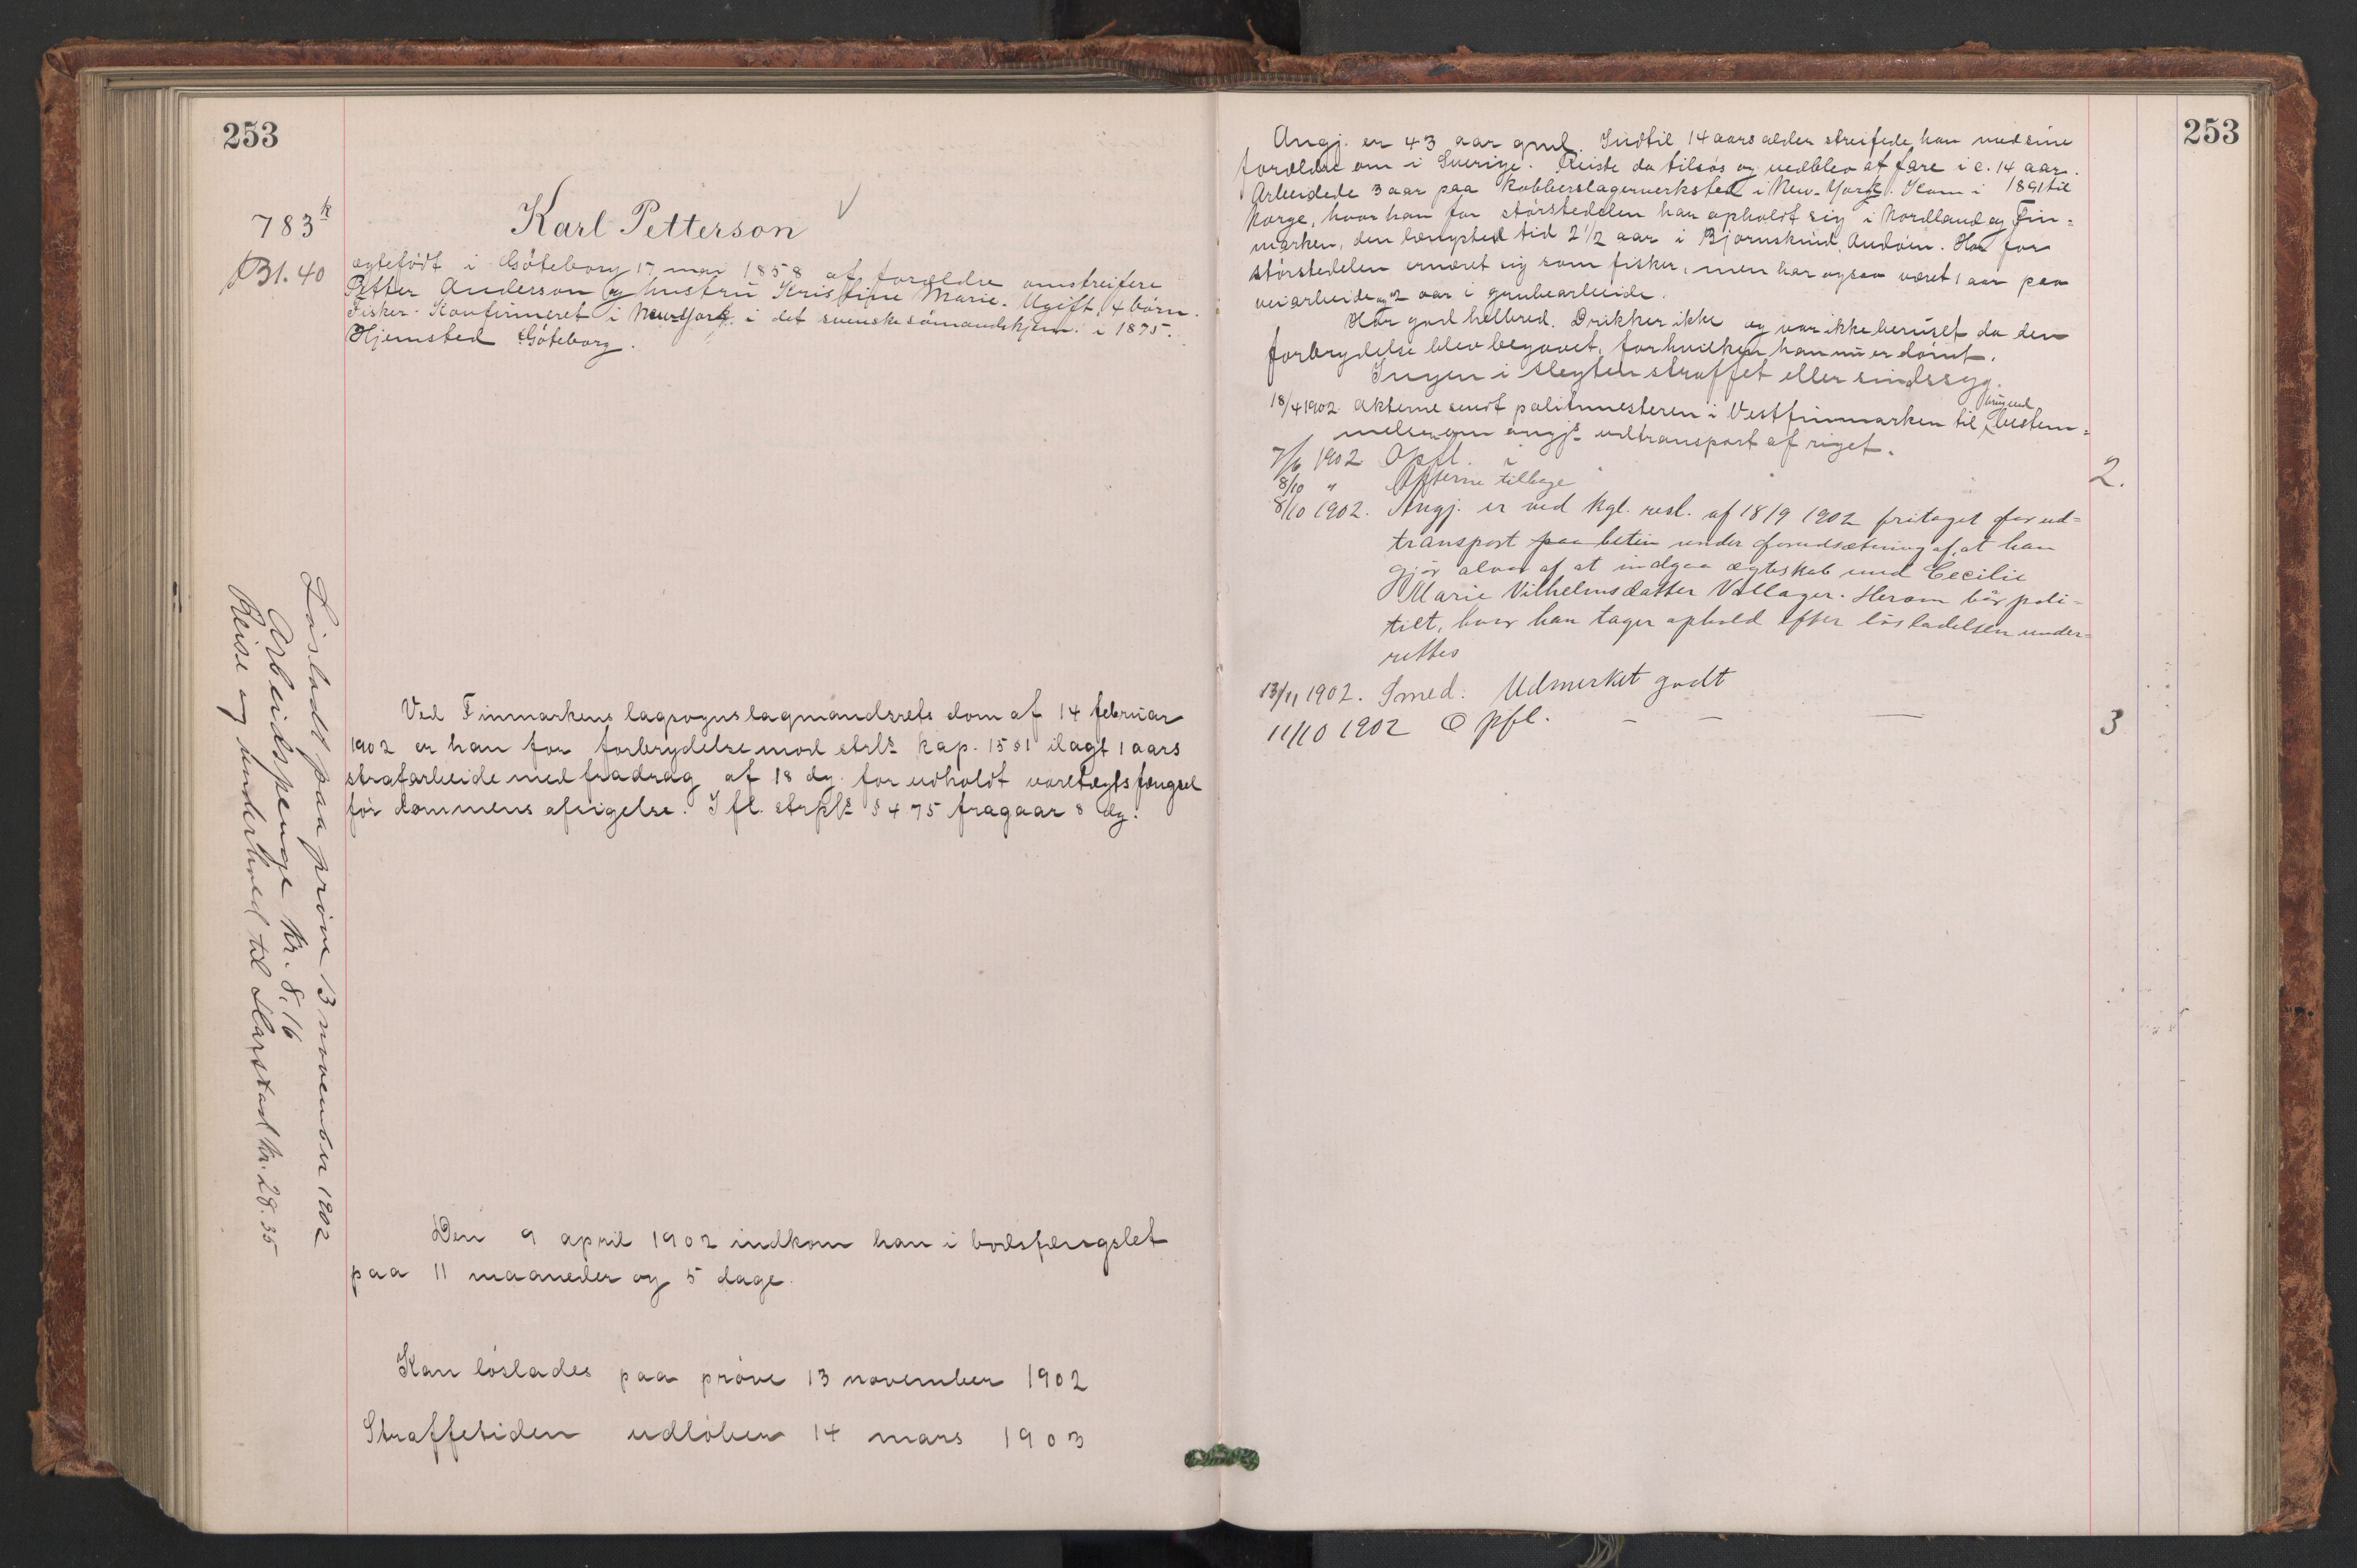 253
783 k
Karl Petterson √
B1.40
ægtefödt i Göteborg 17 mai 1858 af forældre omstreifere
Petter Anderson og hustru Kristine Marie. Ugift, 4 börn.
Fisker. Konfirmeret i New York i det svenske sömandshjem i 1875.
Hjemsted Göteborg.
Ved Finmarkens lagsogns lagmandsrets dom af 14 februar
1902 er han for forbrydelse mod strls kap. 15 § 1 ilagt 1 aars
strafarbeide med fradrag af 18 dg. for udholdt varetægtsfængsel
för dommens afsigelse. Ifl. strpls § 475 fragaar 8 dg.
Den 9 april 1902 indkom han i bodsfængslet
paa 11 maaneder og 5 dage.
Kan löslades paa pröve 13 november 1902
Straffetiden udlöber 14 mars 1903
Lösladt paa pröve 13 november 1902
Arbeidspenge kr. 8,16
Reise og underhold til Harstad kr. 28.35
253
Angj. er 43 aar gml. Indtil 14 aars alder streifede han med sine
forældre om i Sverige. Reiste da tilsös og vedblev at fare i c. 14 aar.
Arbeidede 3 aar paa kobberslagerverksted i New-York. Kom i 1891 til
Norge, hvor han for störstedelen har opholdt sig i Nordland og Fin=
marken, den længsted tid 2 1/2 aar i Björnskind, Andöen. Har for
störstedelen ernæret sig som fisker, men har ogsaa været 1 aar paa
veiarbeide og 2 aar i grubearbeide.
Har god helbred. Drikker ikke og var ikke beruset da den
forbrydelse blev begaaet, for hvilken han nu er dömt.
Ingen i slegten straffet eller sindssyg.
18/4 1902. Akterne sendt politimesteren i Vestfinmarken til bestem=
melse om angjs udtransport af riget.
7/6 1902 Opfl.
2.
8/10 " Akterne tilbage
8/10 1902. Angj. er ved kgl. resl. af 18/9 1902 fritaget for ud=
transport paa betin under forudsætning af, at han
gjör alvor af at indgaa ægteskab med Cecilie
Marie Vilhelmsdatter Vollager. Herom bör poli=
tiet, hvor han tager ophold efter lösladelsen under=
rettes
13/11 1902. Smed. Udmerket godt
11/10 1902 Opfl. — — —
3